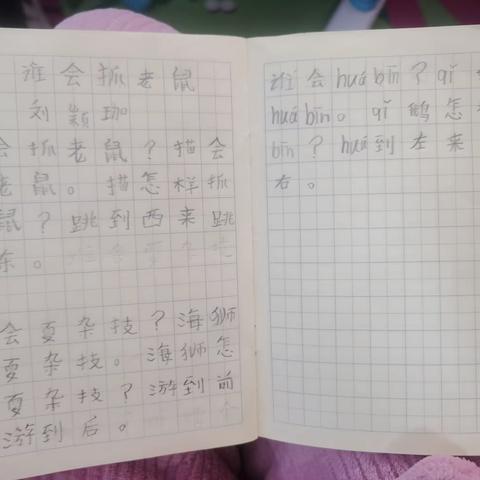 谁会抓老鼠
刘颖珈
会抓老鼠？描会
老鼠。描怎样抓
鼠？跳到西来跳
东。
会夏杂技？海狮
夏杂技。海狮怎
夏杂技？游到前
游到后。
谁会huá bīn？qǐ
huá bīn。qǐ鹅怎
bīn？huá到左来
右。